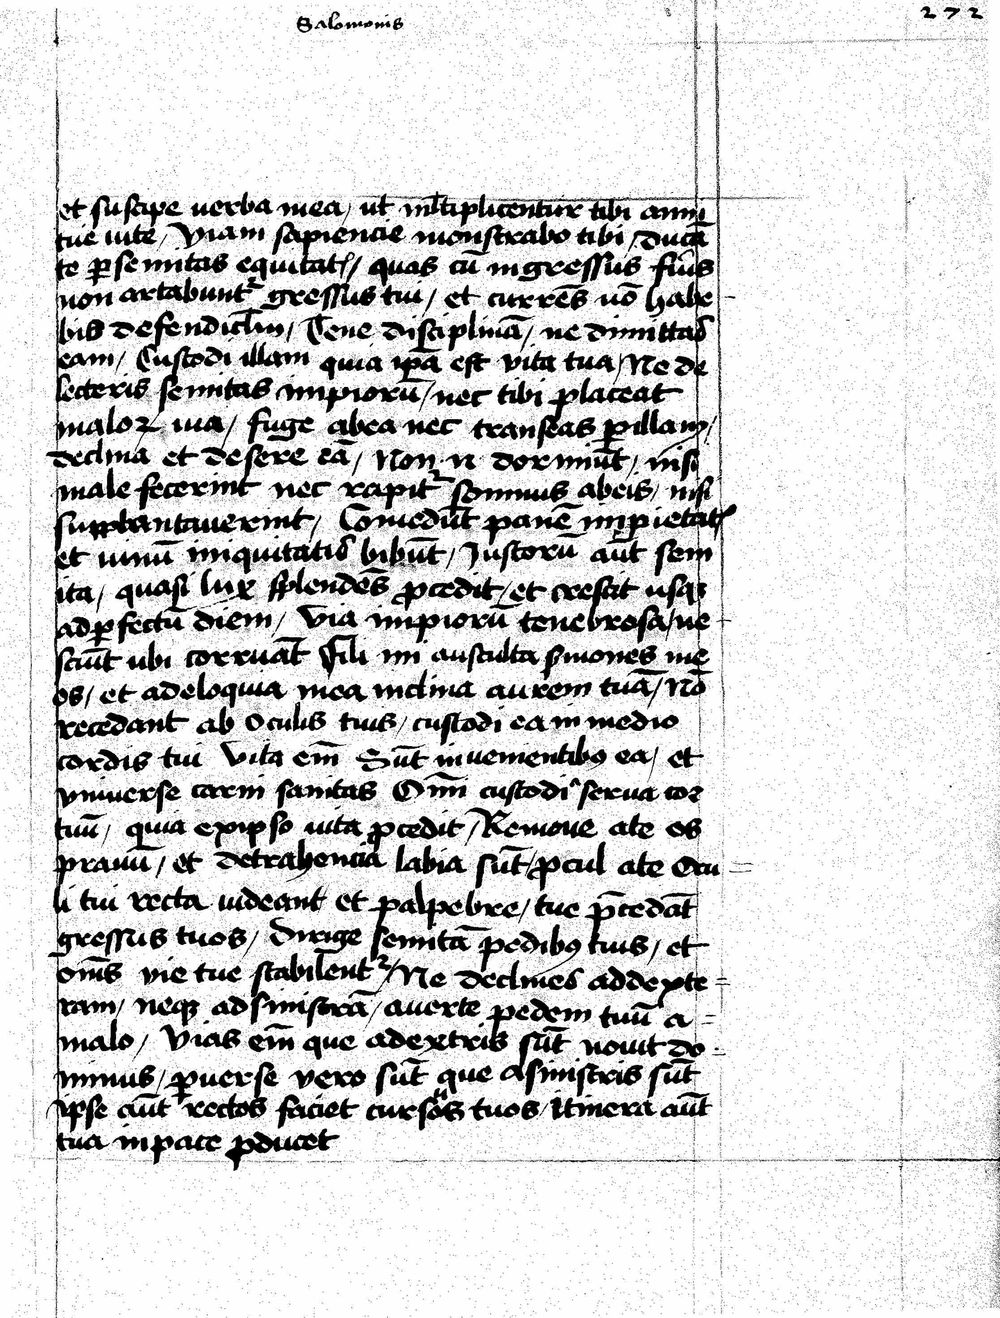 Salomonis
272
et suscipe verba mea / ut ml̄tiplicentur tibi anni
tue uite / Viam sapiencie monstrabo tibi / ducā
te ꝑ semitas equitatꝭ / quas cū ingressus fūis
non artabuntr̄ gressus tui / et currēs nō habe
bis defendicl̄m / Tene disciplinā / ne dimittas
eam / Custodi illam quia ip̄a est vita tua / Ne de
lecteris semitas impiorū / nec tibi placeat
maloꝝ uia / fuge abea nec transeas ꝑ illam /
declina et desere eā / Non n̄ dormiūt / nisi
male fecerint nec rapitr̄ somnus abeis / nisi
supplantauerint / Comedūt panē impietatꝭ
et uinū iniquitatis bibūt / Justorū aūt sem
ita / quasi lux splendēs ꝓcedit / et crescit usqꝫ
ad ꝑfectū diem / Via impiorū tenebrosa / ne
sciūt ubi corruāt Fili mi ausculta s̄mones me
os / et adeloquia mea inclina aurem tuā / Nō
recedant ab oculis tuis / custodi ea in medio
cordis tui Vita em̄ Sūt inuenientibꝰ ea / et
vniuerse carni sanitas Om̄i custodi serua cor
tuū / quia exipso uita ꝓcedit / Remoue ate os
prauū / et detrahencia labia sūt / ꝓcul ate Ocu
li tui recta uideant et palpebre / tue p̄cedāt
gressus tuos / Dirige semitā pedibꝰ tuis / et
om̄s vie tue stabilēntr̄ / Ne declines addexte
ram / neqꝫ ad sinistrā / auerte pedem tuū a
malo / Vias em̄ que adextris sūt nouit do
minus / ꝑuerse vero sūt que asinistris sūt
ipse aūt rectos faciet cursūs tuos / Itinera aūt
tua in pace ꝓducet